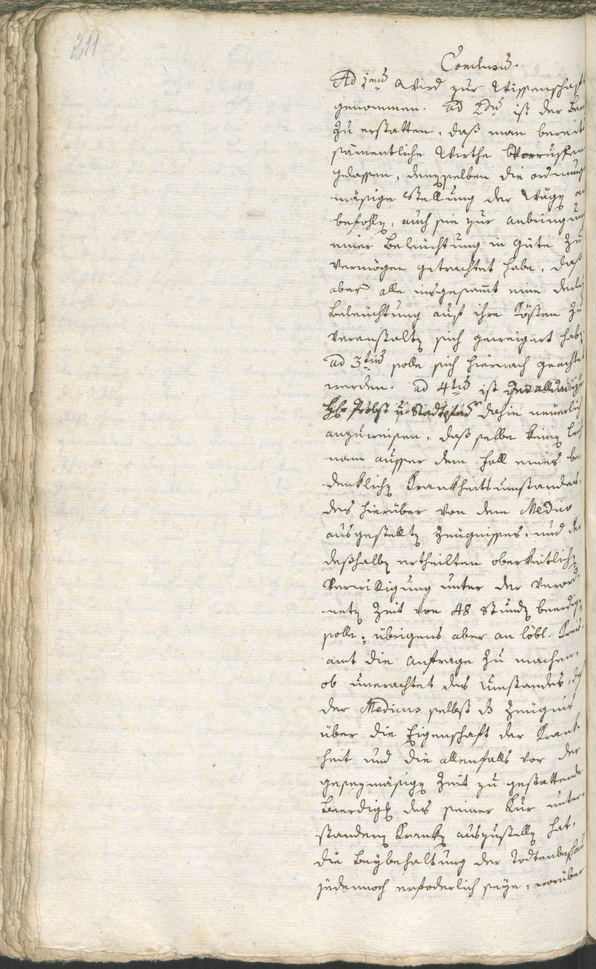 211
Conclusum.
Ad 1mum Wird zur Wissenschaft
genommen. ad 2dum ist der Ber
zu erstatten, daß man bereit
sämentliche Wirthe
gelassen, denenselben die ordnung
mäsige Stellung der Wäge an
befohlen, auch sie zur anbringung
einer Beleuchtung in güte zu
vermögen getrachtet habe, daß
aber alle insgesamt eine derley
Beleuchtung auf ihre Kösten zu
veranstalten sich geweigert haben
ad 3tium solle sich hiernach geachtet
werden. ad 4tum ist
H. Probst u. Stadtpfarr dahin neuerlich
anzuweisen, daß selbe keinen Leich
nam ausser dem Fall eines be
denklichen Krankheitsumstandes,
des hierüber von dem Medico
ausgestellten Zeugnisses, und der
deßhalben ertheilten oberkeitlichen
Verwilligung unter der verord
neten Zeit von 48 Stunden beerdigen
solle; übrigens aber an löbl. Kreis
amt die Anfrage zu machen,
ob unerachtet des Umstandes, daß
der Medicus selbst das Zeugnis
über die Eigenschaft der Krank
heit und die allenfalls vor der
gesezmäsigen Zeit zu gestattende
Beerdigung des seiner Kur unter
standenen Kranken auszustellen hat,
die Beybehaltung der Todtenbeschau
jedennoch erforderlich seye, worüber